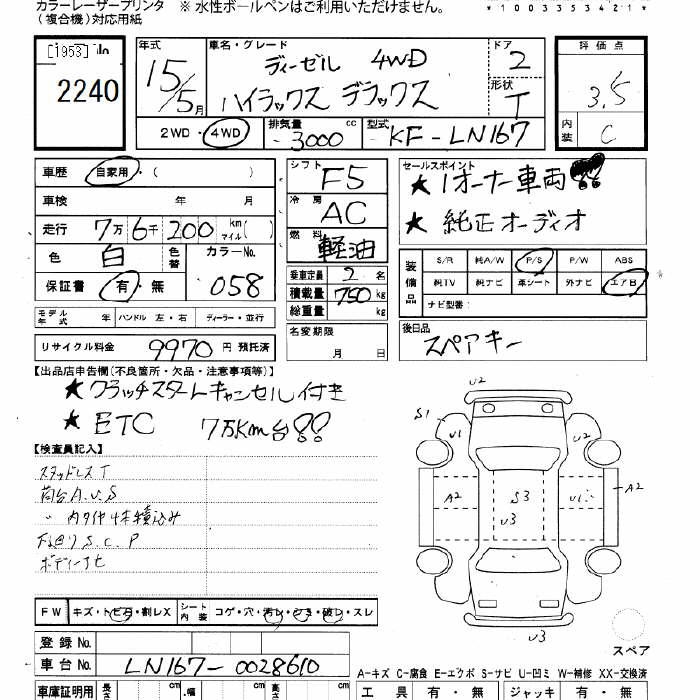 カラーレーザープリンタ ※ 水性ボールペンはご利用いただけません。
(複合機)対応用紙
*1003353421*
[1953]
2240
年式 15/5月
車名・グレード ディーゼル 4WD
ハイラックス デラックス
ドア 2
形状 T
評価点 3.5
内装 C
2WD・4WD 排気量 3000 cc 型式 KF-LN167
車歴 自家用・( )
車検 年 月
走行 7万6千200 km マイル( )
色 白 色替 カラーNo. 058
保証書 有・無
モデル年式 年 ハンドル 左・右 ディーラー・並行
リサイクル料金 9970 円 預託済
シフト F5
冷房 AC
燃料 軽油
乗車定員 2 名
積載量 750 kg
総重量 kg
名変期限 月 日
セールスポイント
★1オーナー車両!!
★純正オーディオ
装備品 S/R 純A/W P/S P/W ABS
純TV 純ナビ 革シート 外ナビ エアB
ナビ型番:
後日品
スペアキー
【出品店申告欄(不良箇所・欠品・注意事項等)】
★クラッチスタートキャンセル付き
★ETC 7万km台!!
【検査員記入】
スタッドレスT
荷台A.U.S
〃 内タイヤ4本積込み
下廻りS.C.P
U2
S1
U1
U2
A2
S3
U1
A2
U3
U3
スペア
FW キズ・トビ石・割レX シート内装 コゲ・穴・汚レ・シミ・破レ・スレ
登録 No.
車台 No. LN167-0028610
A-キズ C-腐食 E-エクボ S-サビ U-凹ミ W-補修 XX-交換済
車庫証明用 長さ cm 幅 cm 高さ cm
工具 有・無 ジャッキ 有・無